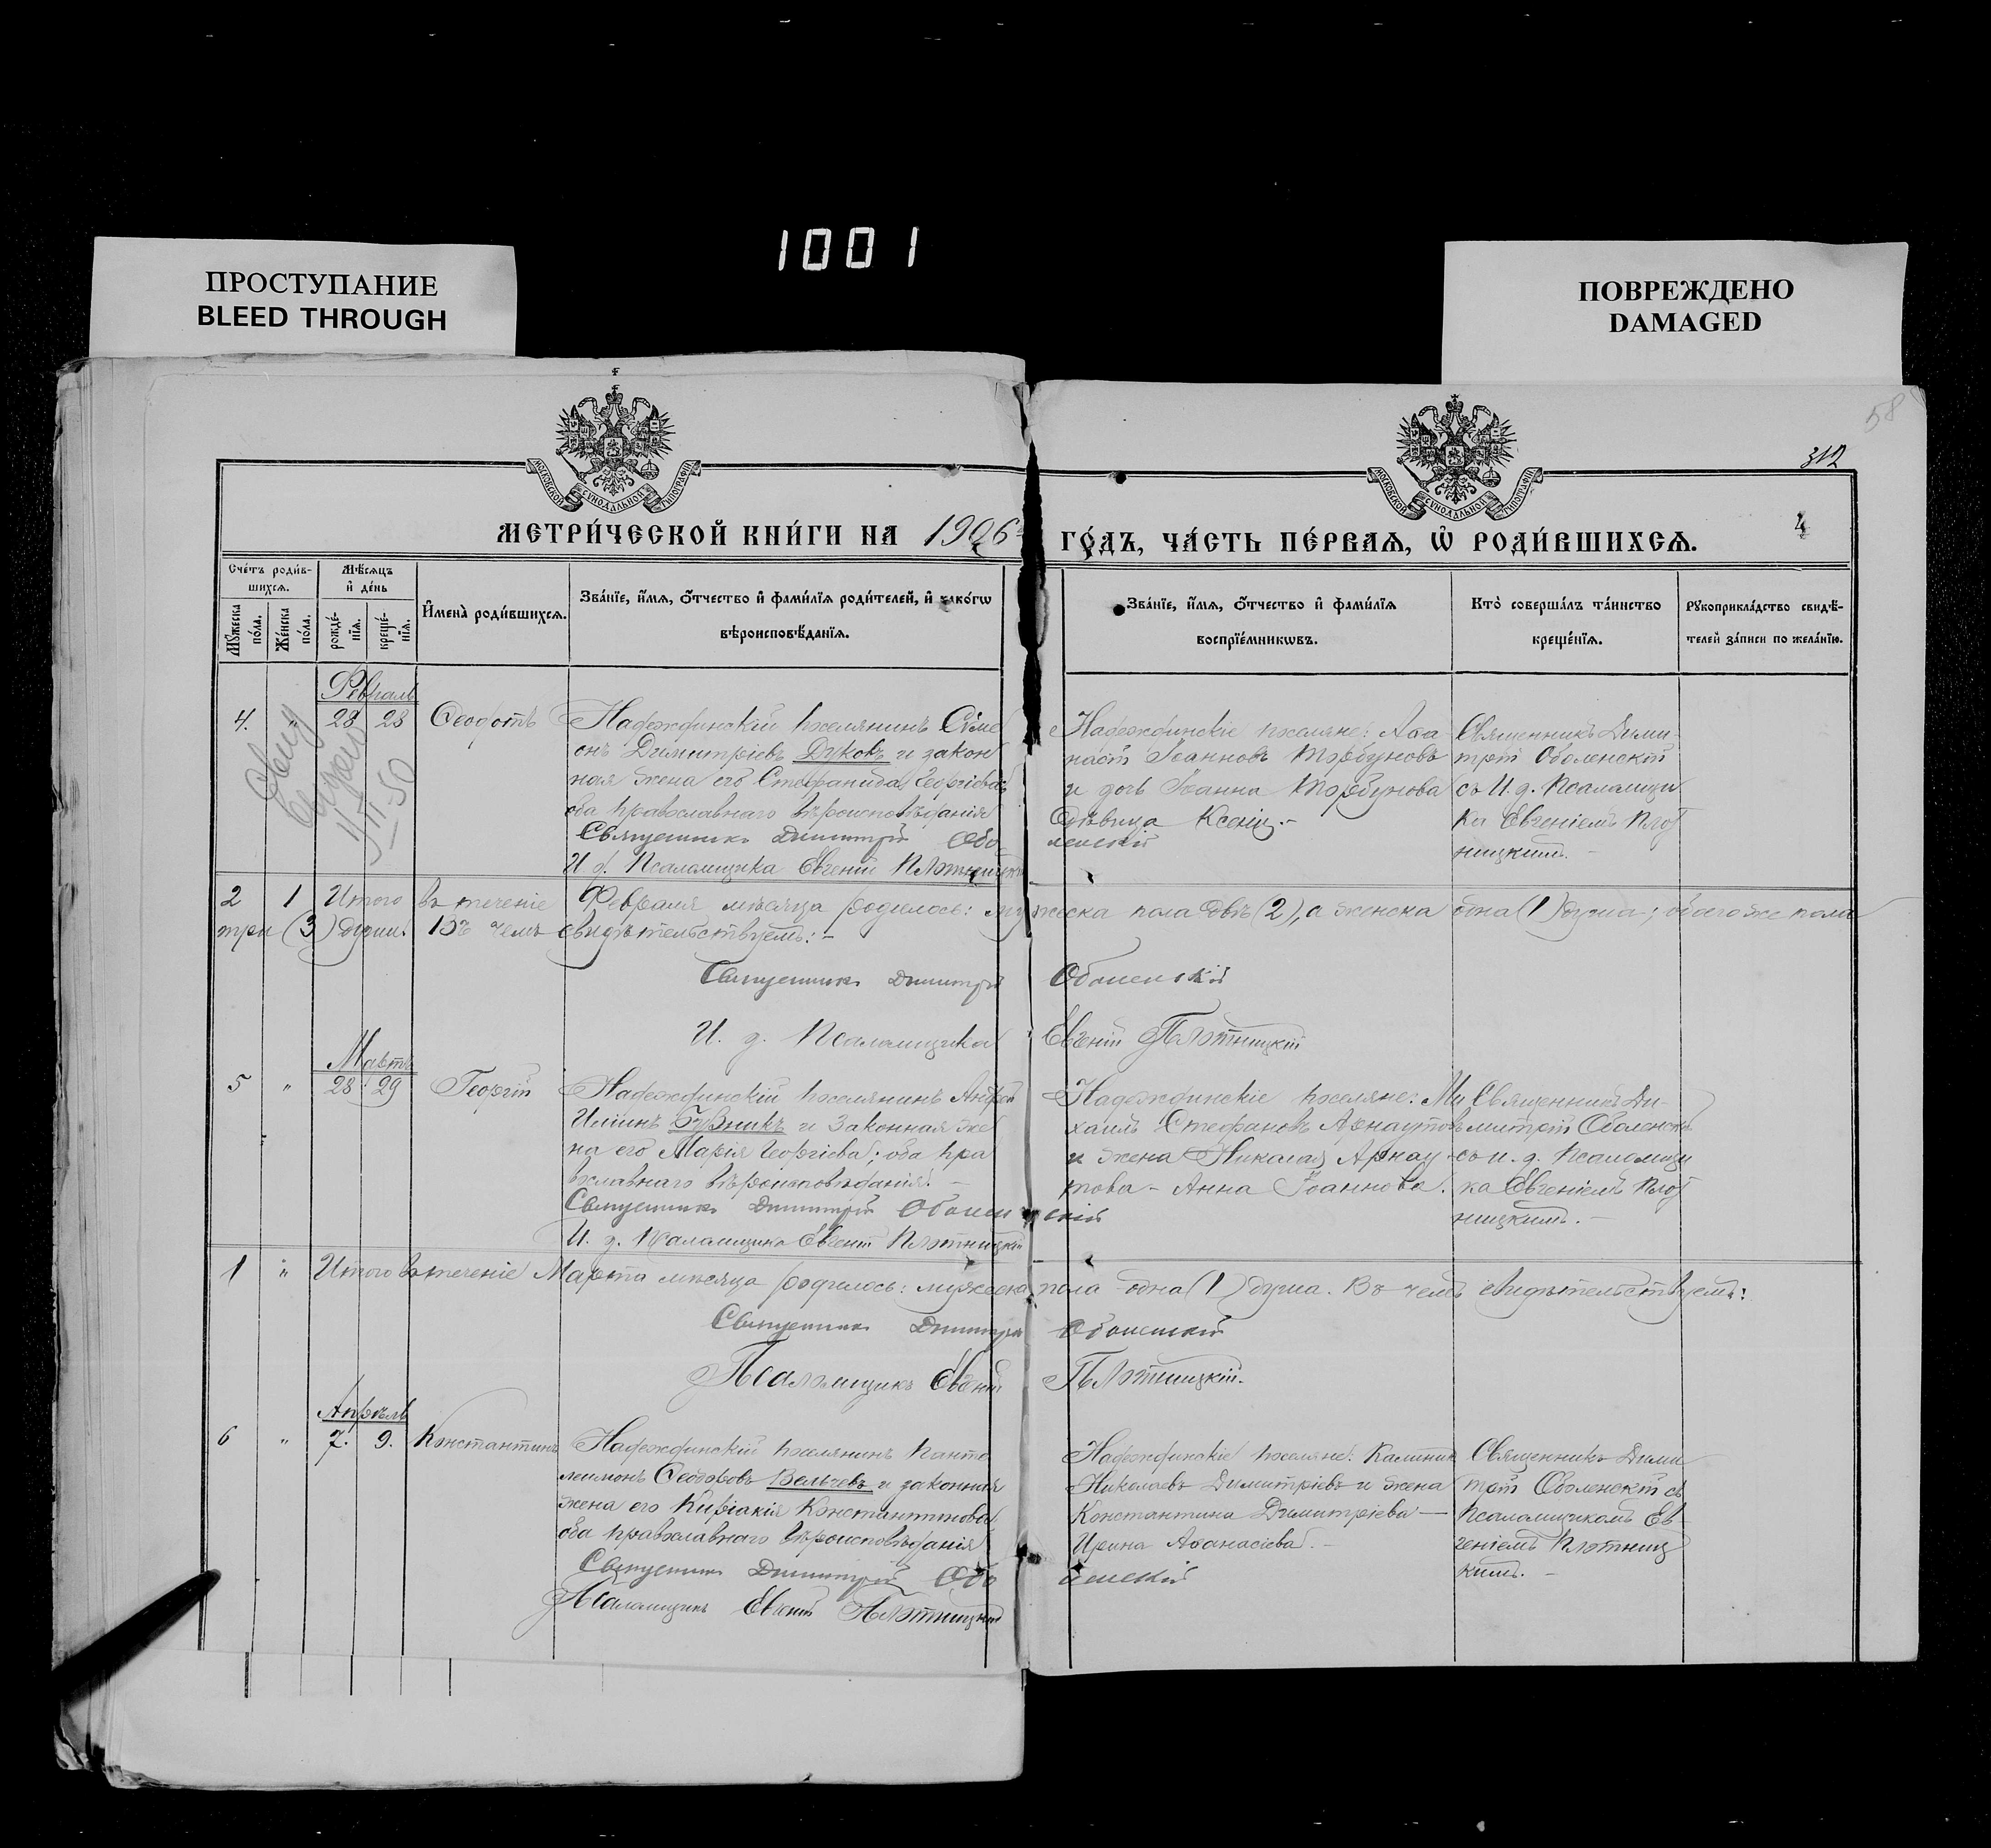 1001
ПРОСТУПАНИЕ
BLEED THROUGH
ПОВРЕЖДЕНО
DAMAGED
58
312
4
МОСКОВСКОЙ СѴНОДАЛЬНОЙ ТИПОГРАФІИ
МОСКОВСКОЙ СѴНОДАЛЬНОЙ ТИПОГРАФІИ
МЕТРИ́ЧЕСКОЙ КНИ́ГИ НА 1906 ГО́ДЪ, ЧА́СТЬ ПЕ́РВАѦ, Ѿ РОДИ́ВШИХСѦ.
Сче́тъ роди́в-
шихсѧ.
Мꙋ́жеска по́ла.
Же́нска по́ла.
Мѣ́сѧцъ
и҆ де́нь
рожде́-нїѧ.
креще́-нїѧ.
И҆мена̀ роди́вшихсѧ.
Зва́нїе, и҆́мѧ, ѻ҆́тчество и҆ фами́лїѧ роди́телей, и҆ како́гѡ
вѣроисповѣ́данїѧ.
Зва́нїе, и҆́мѧ, ѻ҆́тчество и҆ фами́лїѧ
воспрїе́мникѡвъ.
Кто̀ соверша́лъ та́инство
креще́нїѧ.
Рꙋкоприкла́дство свидѣ́-
телей за́писи по жела́нїю.
Февраль
4. " 28 28 Ѳеодотъ
Надеждинскій поселянинъ Сѵме
онъ Димитріевъ Дуковъ и закон
ная жена его Стефанида Георгіева;
оба православнаго вѣроисповѣданія
Священникъ Димитрій Обо
ленскій
И. д. Псаломщика Евгеній Плотницкій
Надеждинскіе поселяне: Аѳа
насій Іоанновъ Торбуновъ
и дочь Іоанна Торбунова
дѣвица Ксенія.-
Священникъ Дими
трій Оболенскій
съ И. д. Псаломщи
ка Евгеніемъ Плот
ницкимъ. -
11/II-50
2 1 Итого въ теченіе Февраля мѣсяца родилось: мужеска пола двѣ (2), а женска одна (1) душа; обоего же пола
три (3) души. Въ чемъ свидѣтельствуемъ: -
Священникъ Димитрій Оболенскій
И. д. Псаломщика Евгеній Плотницкій
Мартъ
5 " 28 29 Георгій
Надеждинскій поселянинъ Андрей
Иліинъ Бузникъ и законная же
на его Марія Георгіева; оба пра
вославнаго вѣроисповѣданія. -
Священникъ Димитрій Оболенскій
И. д. Псаломщика Евгеній Плотницкій
Надеждинскіе поселяне: Ми
хаилъ Стефановъ Арнаутовъ
и жена Николая Арнау
това - Анна Іоаннова.
Священникъ Ди-
митрій Оболенскій
съ и. д. Псаломщи
ка Евгеніемъ Плот
ницкимъ. -
1 " Итого въ теченіе Марта мѣсяца родилось: мужеска пола одна (1) душа. Въ чемъ свидѣтельствуемъ:
Священникъ Димитрій Оболенскій
Псаломщикъ Евгеній Плотницкій.
Апрѣль
6 " 7. 9. Константинъ
Надеждинскій поселянинъ Панте
леимонъ Ѳеодоровъ Вельчевъ и законная
жена его Киріакія Константинова
оба православнаго вѣроисповѣданія
Священникъ Димитрій Оболенскій
Псаломщикъ Евгеній Плотницкій
Надеждинскіе поселяне: Калиник
Николаевъ Димитріевъ и жена
Константина Димитріева -
Ирина Аѳанасіева. -
Священникъ Дими
трій Оболенскій съ
Псаломщикомъ Ев-
геніемъ Плотниц
кимъ. -